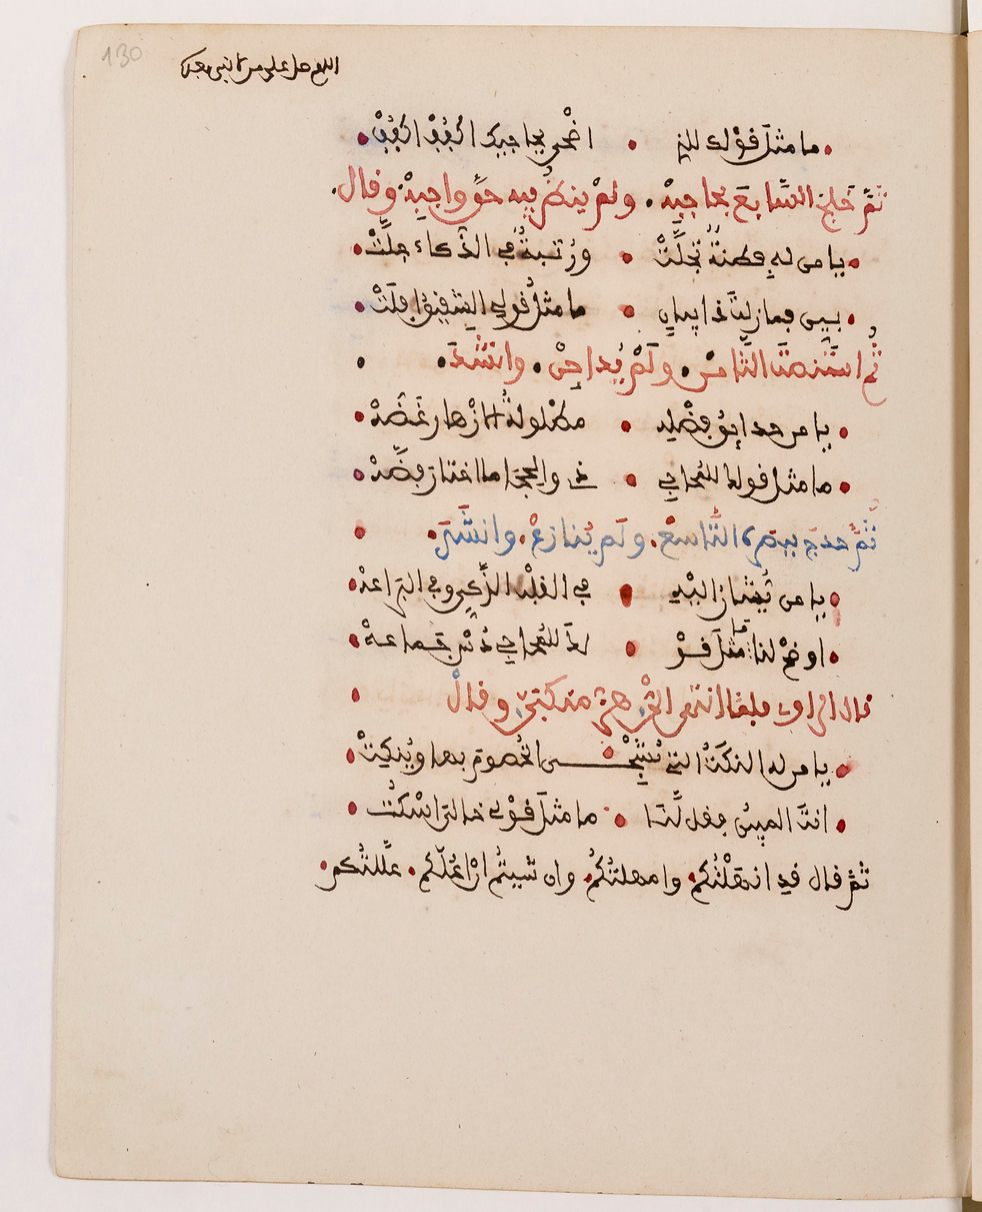 130
اللهم صل على من لا نبي بعده
ما مثل قولك للذي • اضحى يحاجيك اكفف اكفف
ثم خلج السابع بحاجبه • ولم ينظر فيه حق واجبه • وقال
يا من له فطنة تجلت • ورتبة في الذكاء جلت
بين فما زلت ذا بيان • ما مثل قولي الشقيق افلت
ثم استنصت الثامن • ولم يداجن • وانشد
يا من حدائق فضله • مطلولة الازهار غضه
ما مثل قولك للمحاجي • ذي الحجا ما اختار فضه
ثم حدج ببصره التاسع • ولم ينازع • وانشد
يا من يشار اليه • في القلب الذكي وفي البراعه
اوضح لنا ما مثل قو • لك للمحاجي دس جماعه
قال الراوي فلما انتهى الي هز منكبي وقال
يا من له النكت التي يشجي الخصوم بها وينكت
انت المبين فقل لنا • ما مثل قولي خالي اسكت
ثم قال قد انهلتكم • وامهلتكم • وان شيتم ان اعلكم • عللتكم